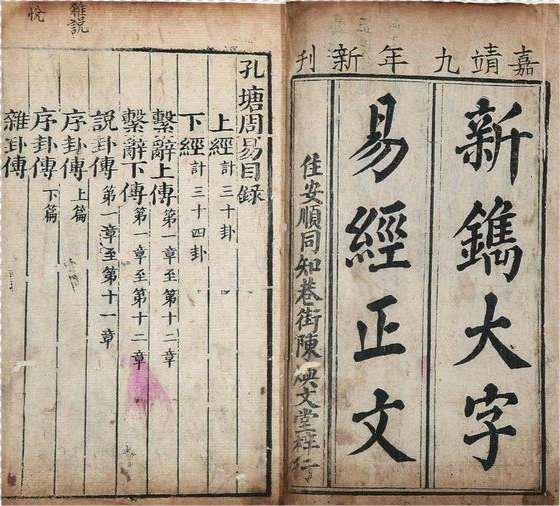 嘉靖九年新刊
新鐫大字
易經正文
住安順同知巷街陳文堂梓行
孔塘周易目録
上經 計三十卦
下經 計三十四卦
繫辭上傳 第一章至第十二章
繫辭下傳 第一章至第十二章
說卦傳 第一章至第十一章
序卦傳 上篇
序卦傳 下篇
雜卦傳
雜説
悅